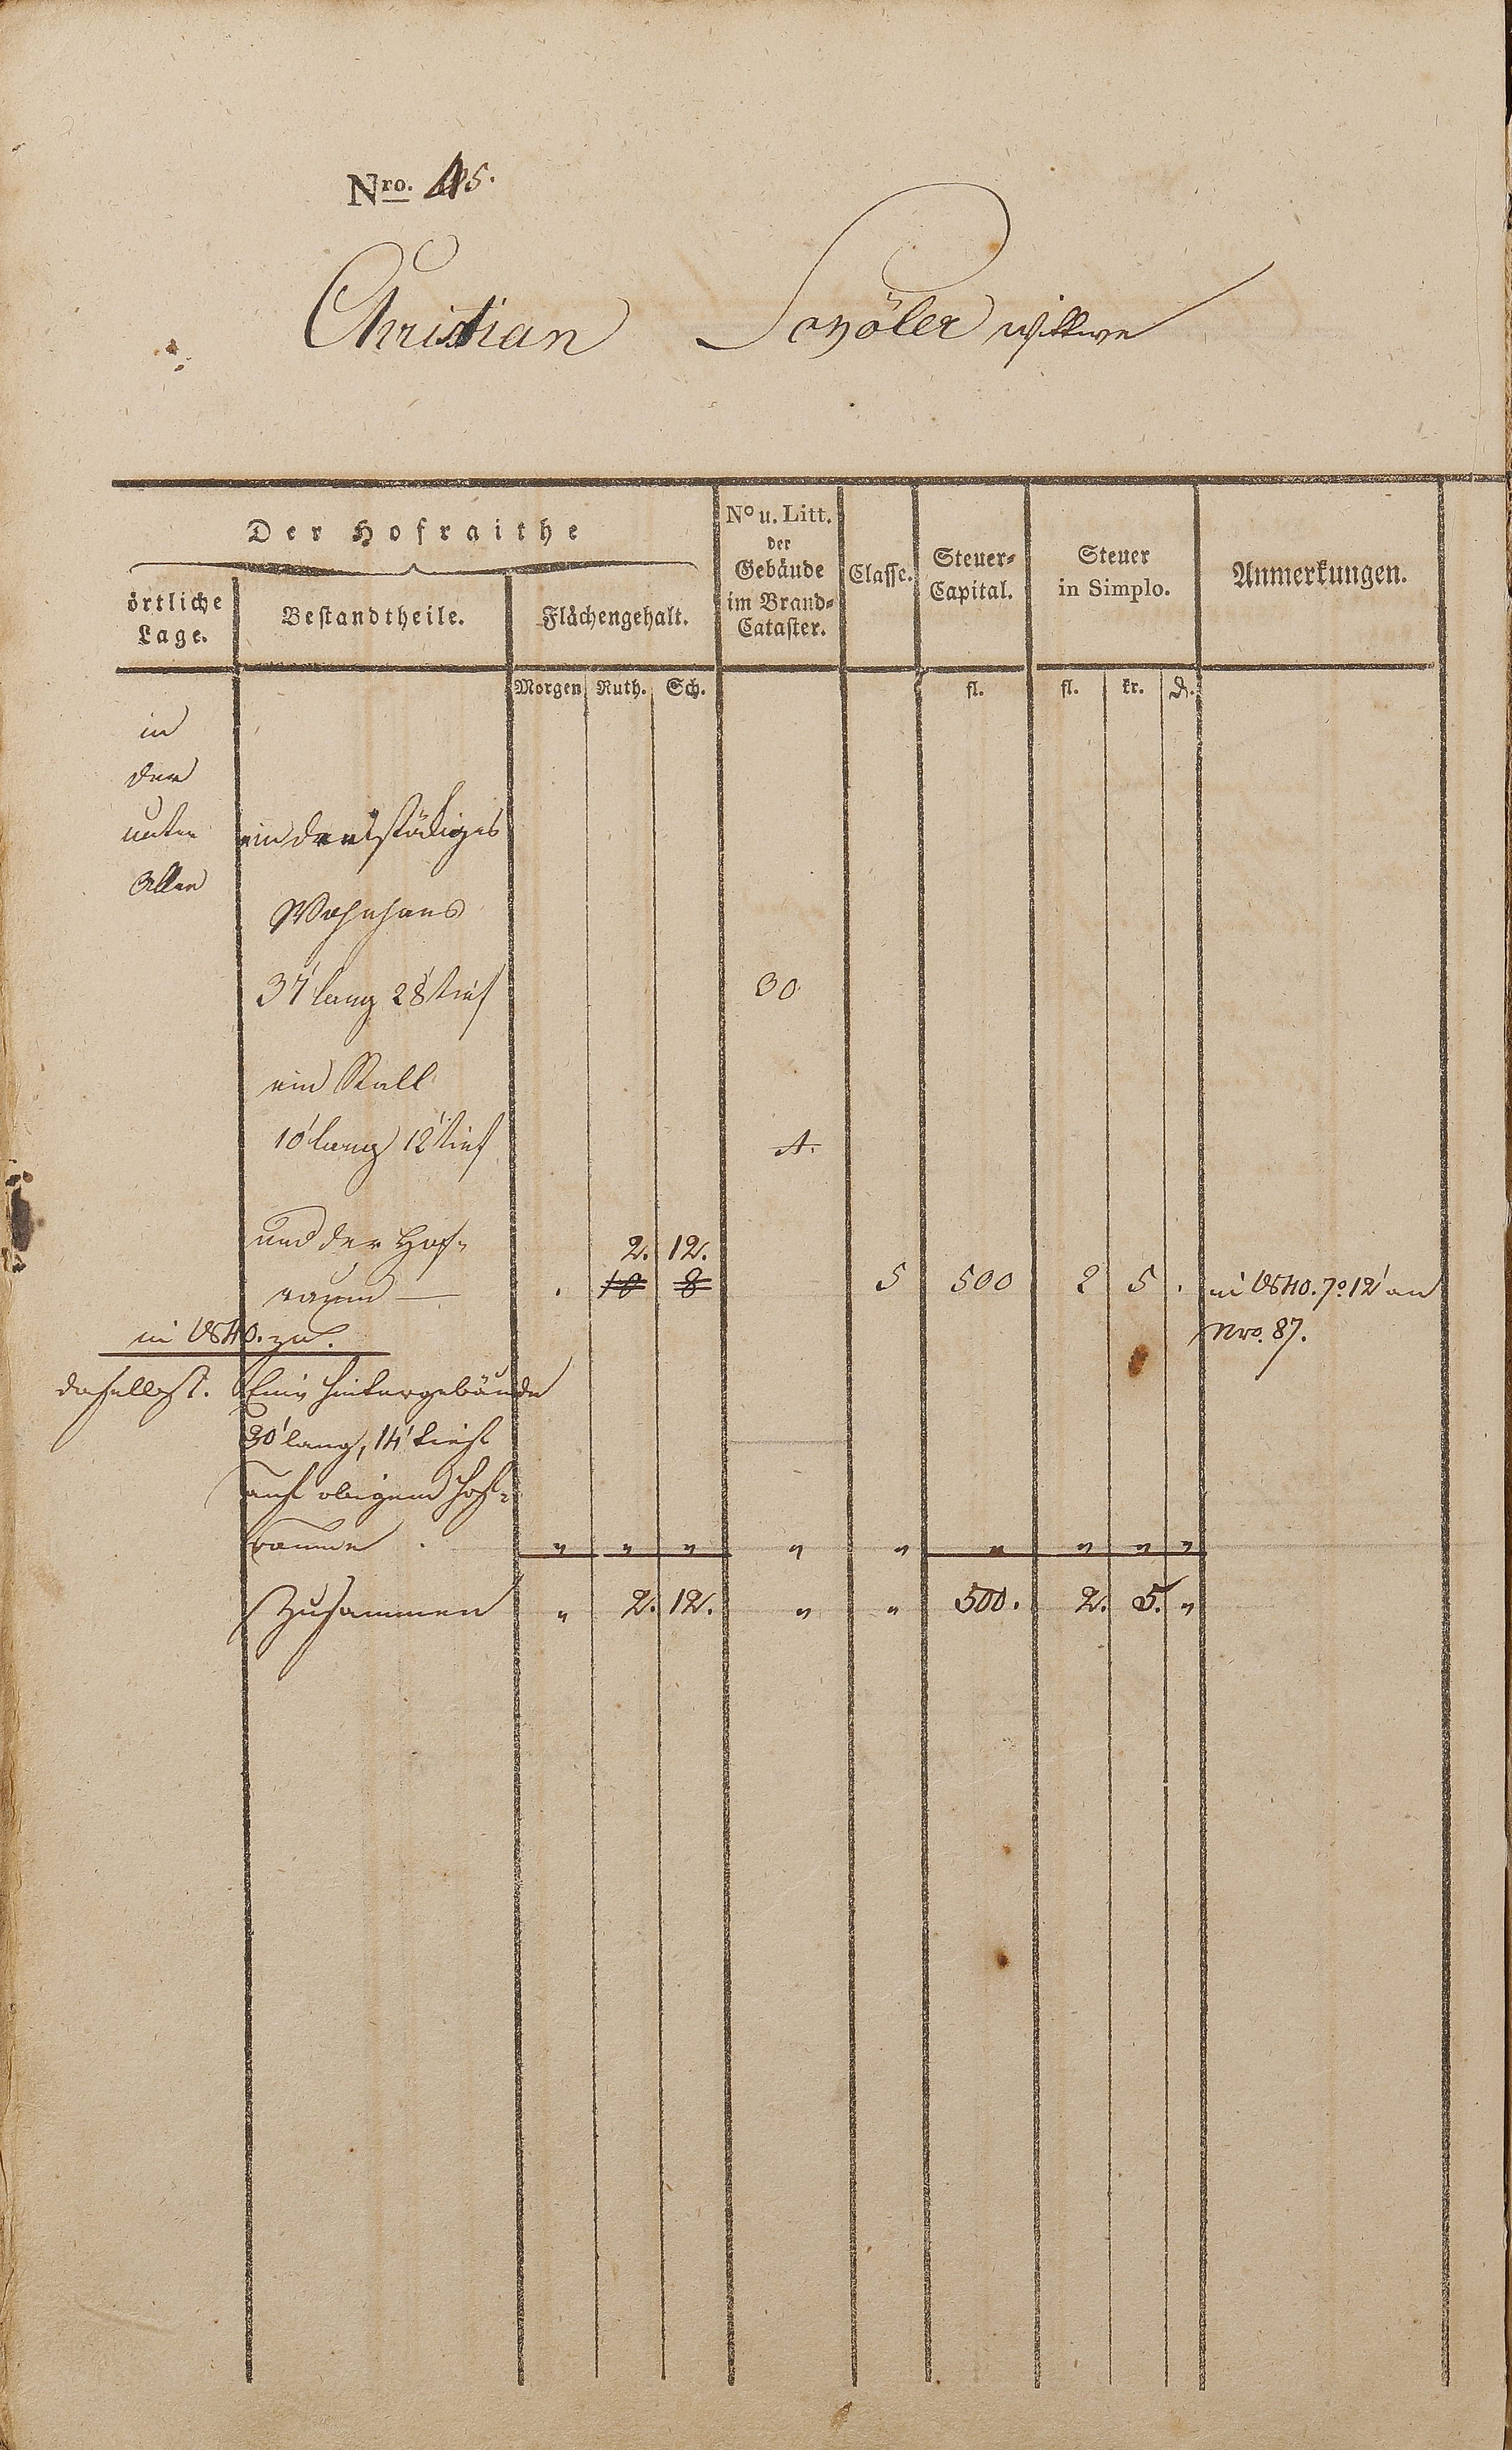 Nro. 45.
Christian Scyöler wittwe
Der Hofraithe
örtliche Lage.
Bestandtheile.
Flächengehalt.
No u. Litt. der Gebäude im Brand-Cataster.
Classe.
Steuer-Capital.
Steuer in Simplo.
Anmerkungen.
Morgen Ruth. Sch. fl. fl. kr. d.
in
der
unter ein dreistökiges
Allee
Wohnhaus
37' lang 28' tief 30
ein Stall
10' lang 12' tief A.
und der Hof- 2. 12.
raum — . 10 8 5 500 2 5 . in 1840. 7° 12' an
in 1840. zu. Nro. 87.
daselbst. Ein Hintergebäude
30' lang, 14' tief
auf obigem Hof-
raume . " " " " " " " " "
Zusammen " 2. 12. " " 500. 2. 5. "